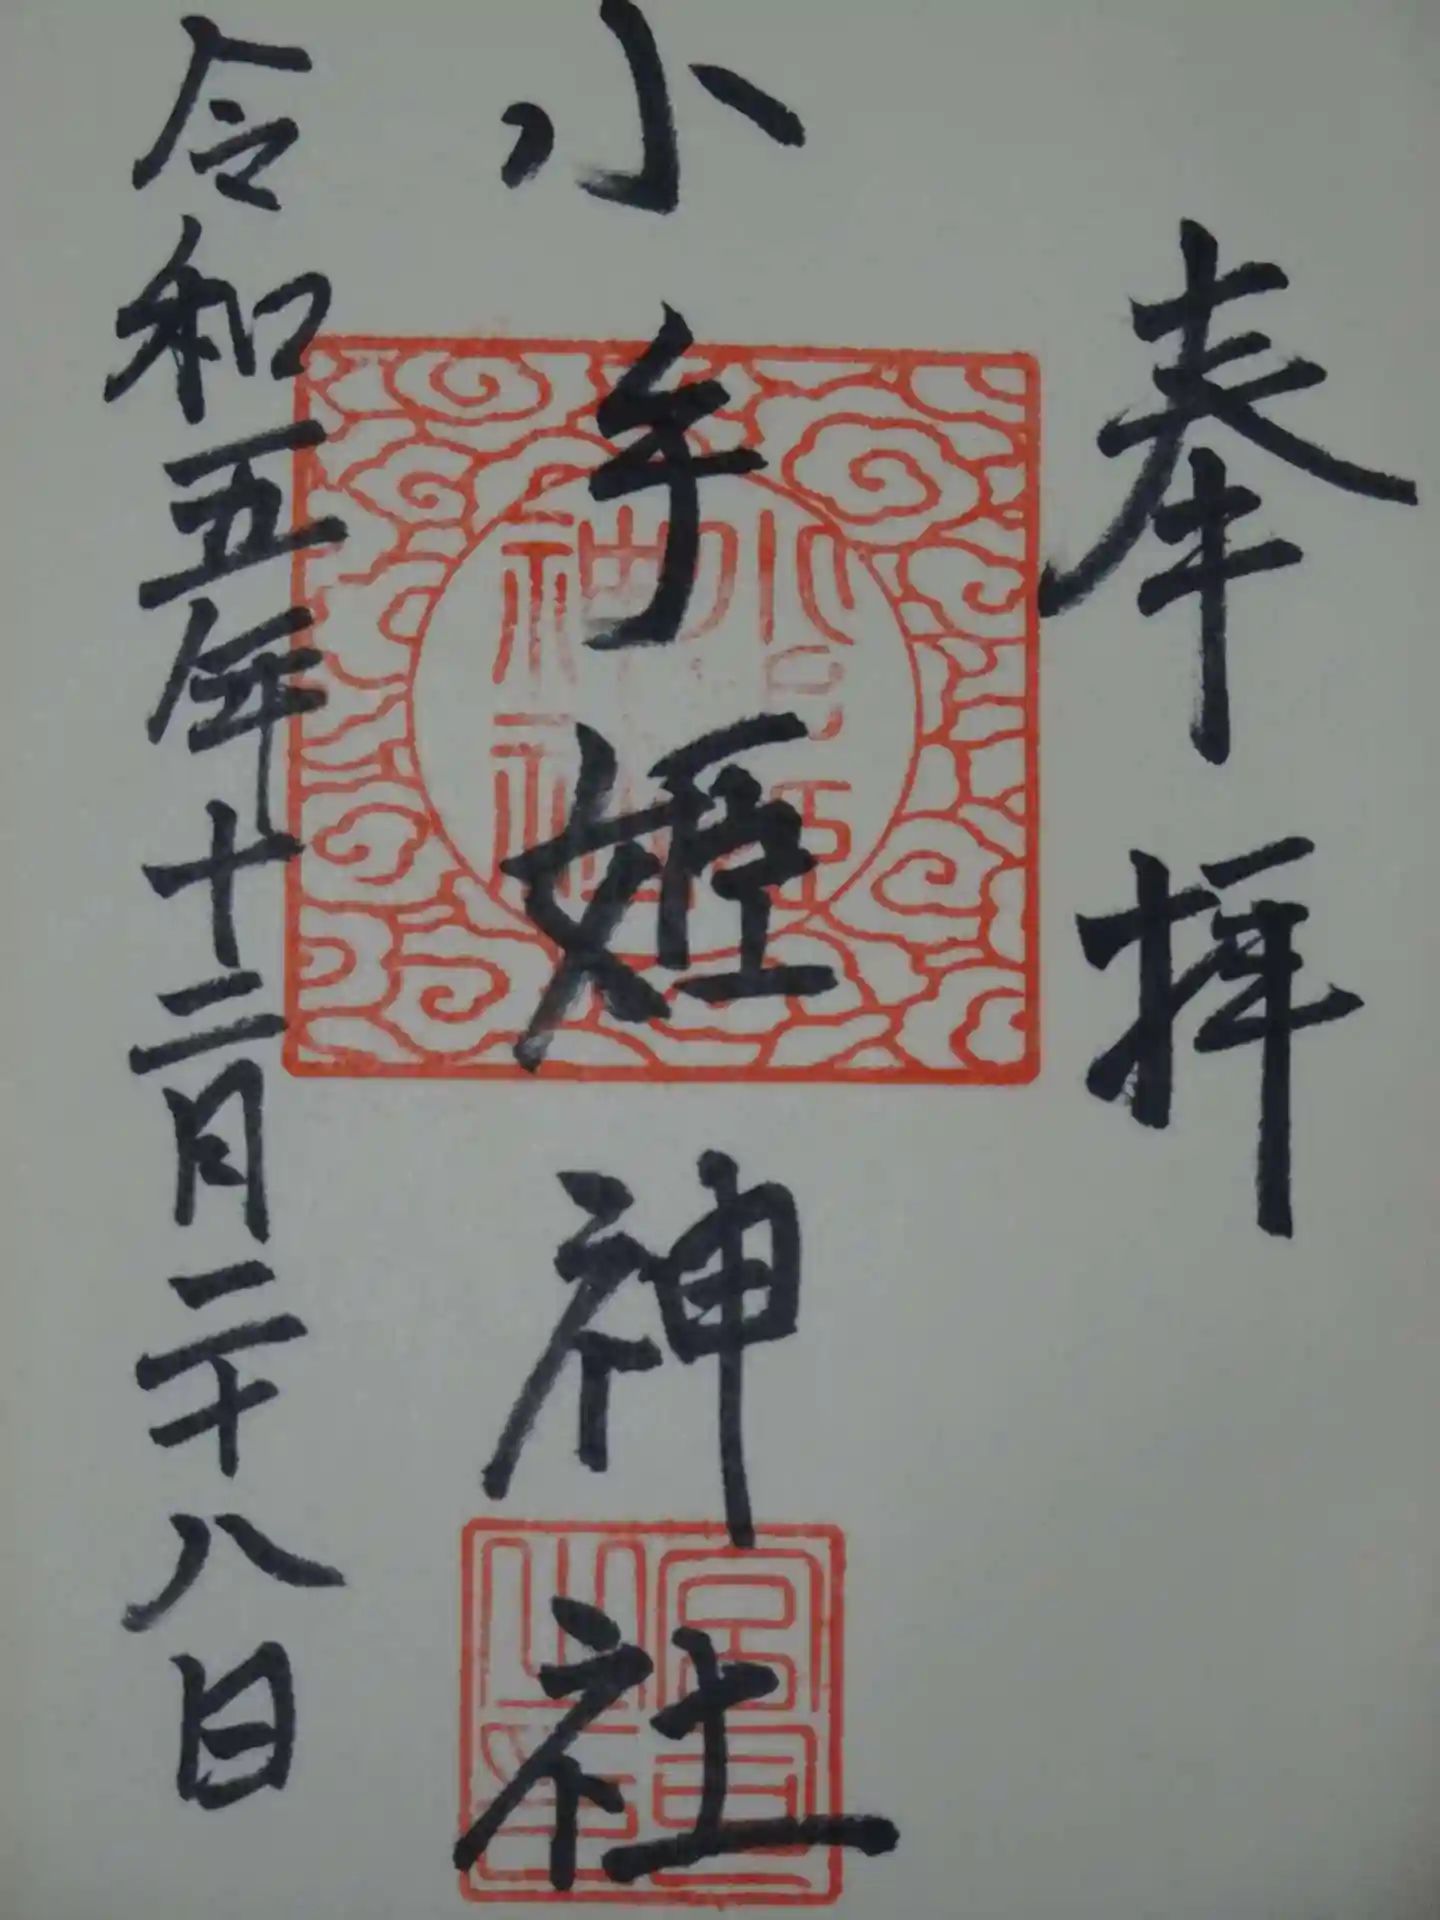 奉拝
小手姫神社
令和五年十二月二十八日
宮司之印